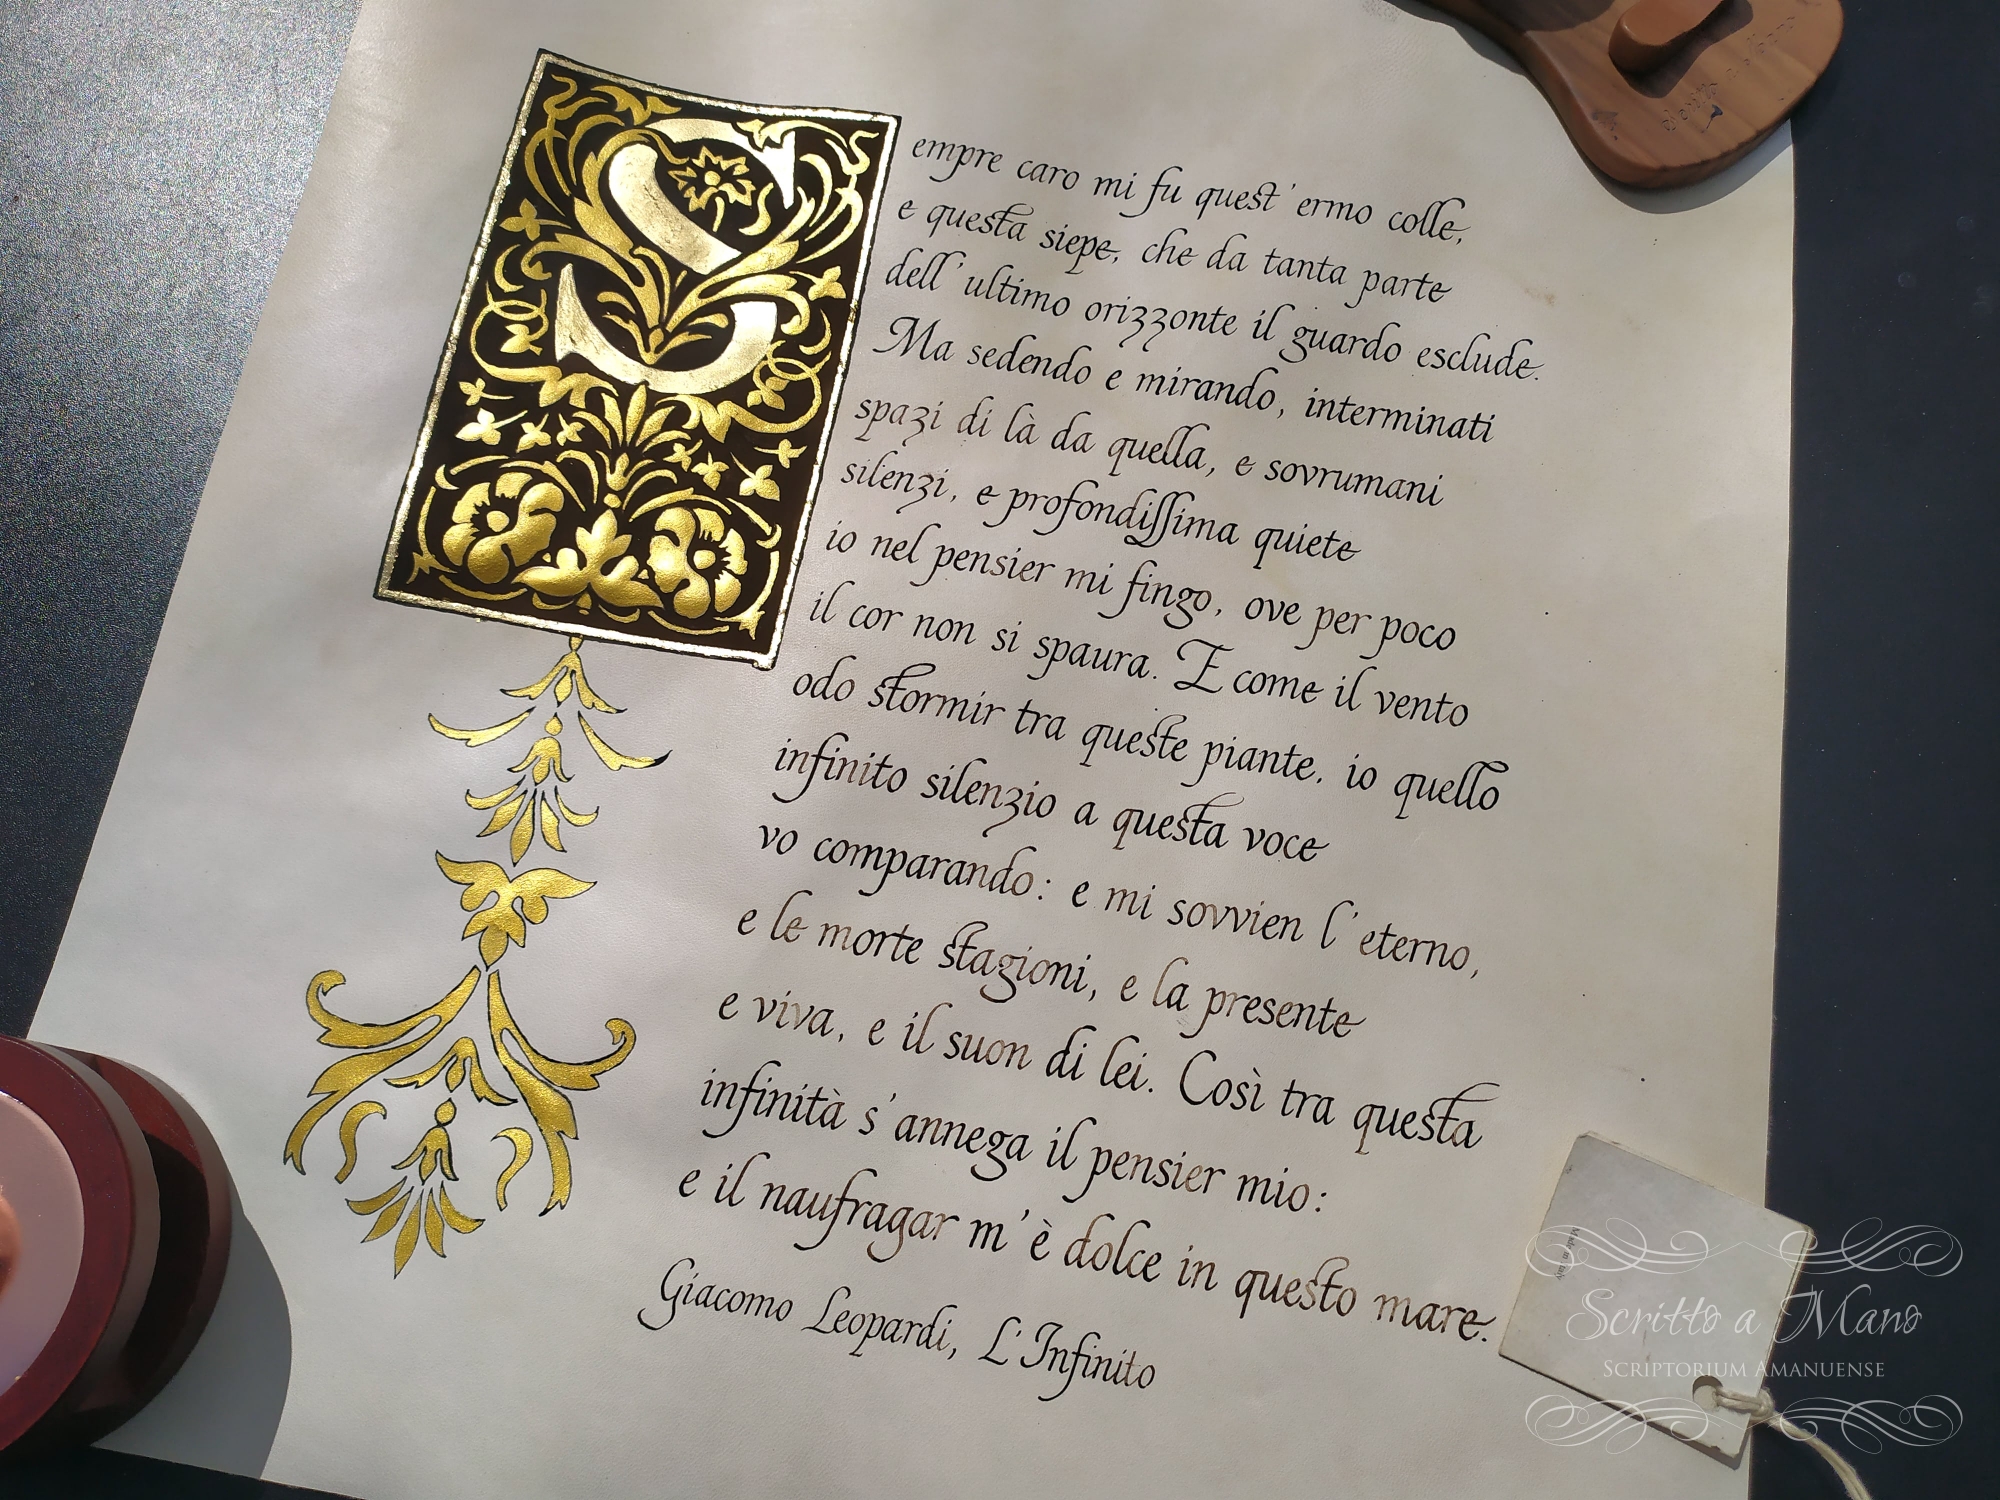 Sempre caro mi fu quest'ermo colle,
e questa siepe, che da tanta parte
dell'ultimo orizzonte il guardo esclude.
Ma sedendo e mirando, interminati
spazi di là da quella, e sovrumani
silenzi, e profondissima quiete
io nel pensier mi fingo, ove per poco
il cor non si spaura. E come il vento
odo stormir tra queste piante, io quello
infinito silenzio a questa voce
vo comparando: e mi sovvien l'eterno,
e le morte stagioni, e la presente
e viva, e il suon di lei. Così tra questa
infinità s'annega il pensier mio:
e il naufragar m'è dolce in questo mare.
Giacomo Leopardi, L'Infinito
Made in Italy
Scritto a Mano
SCRIPTORIUM AMANUENSE